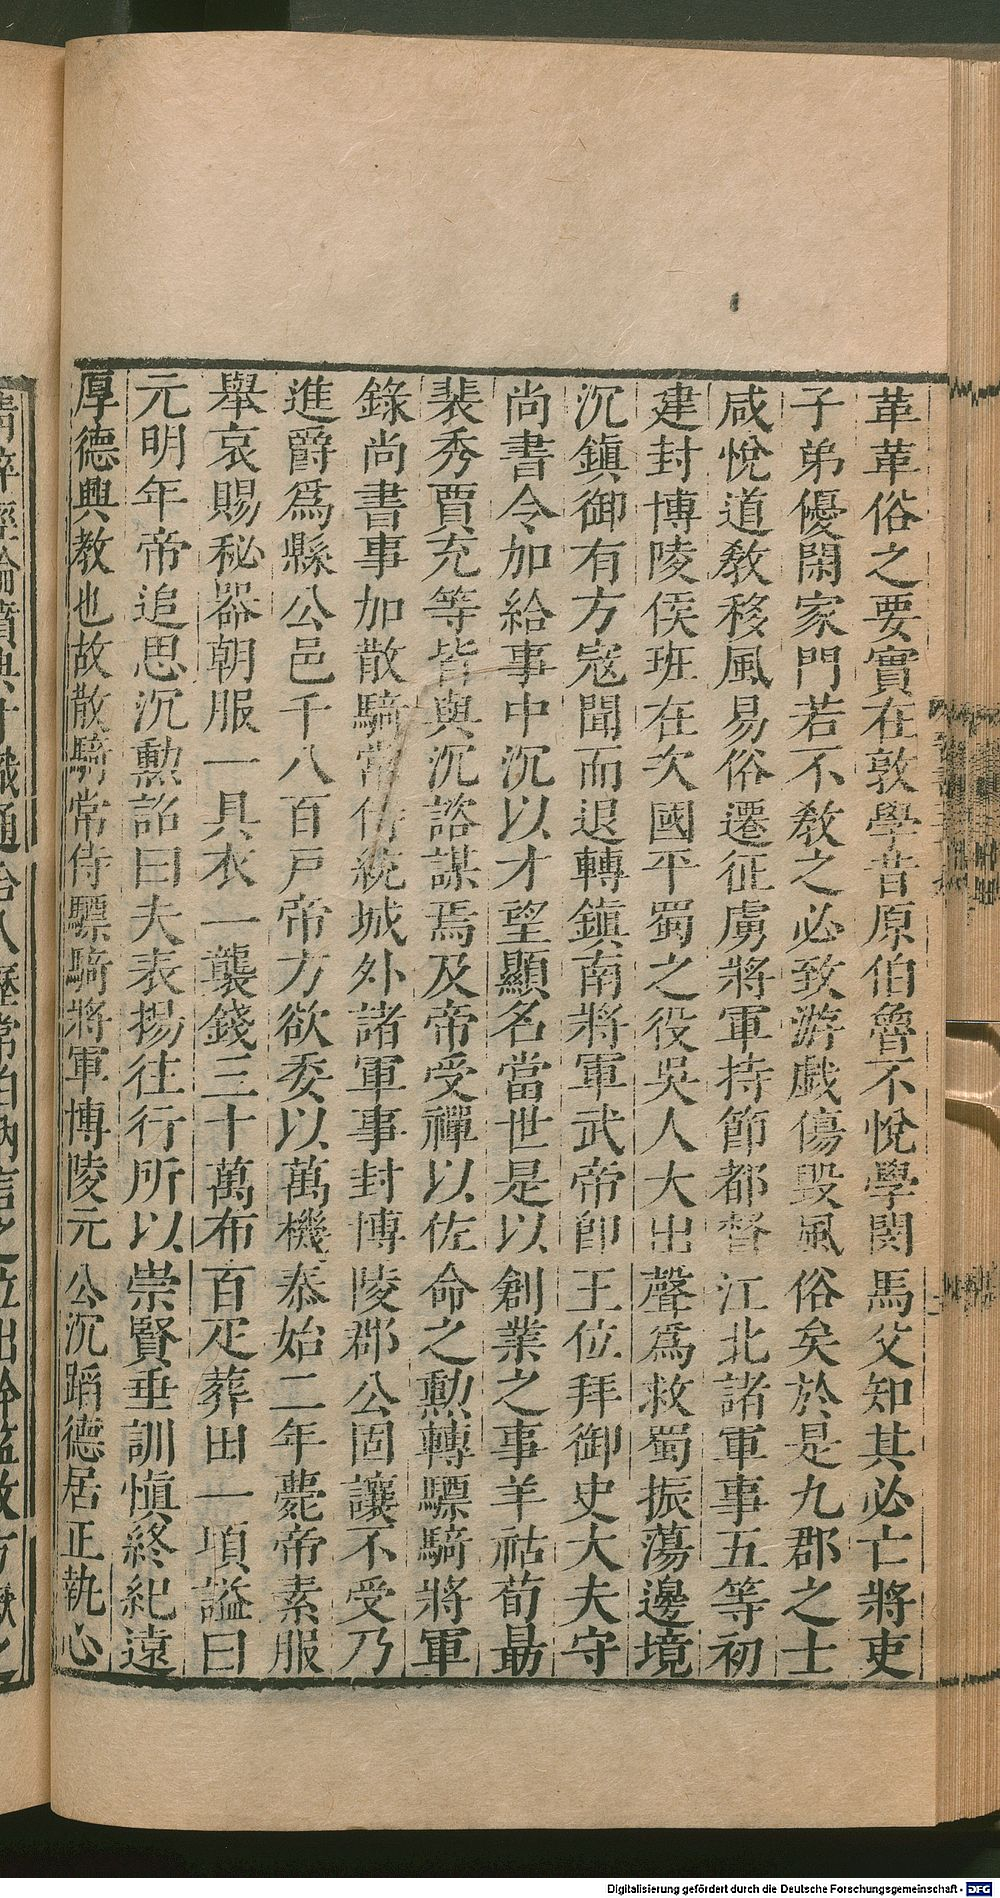 革革俗之要實在敦學昔原伯魯不悅學閔馬父知其必亡將吏
子弟優閑家門若不教之必致游戲傷毀風俗矣於是九郡之士
咸悅道教移風易俗遷征虜將軍持節都督江北諸軍事五等初
建封博陵侯班在次國平蜀之役吳人大出聲爲救蜀振蕩邊境
沉鎮御有方寇聞而退轉鎮南將軍武帝即王位拜御史大夫守
尚書令加給事中沉以才望顯名當世是以創業之事羊祜荀勗
裴秀賈充等皆與沉諮謀焉及帝受禪以佐命之勳轉驃騎將軍
錄尚書事加散騎常侍統城外諸軍事封博陵郡公固讓不受乃
進爵爲縣公邑千八百戸帝方欲委以萬機泰始二年薨帝素服
舉哀賜秘器朝服一具衣一襲錢三十萬布百疋葬田一項謚曰
元明年帝追思沉勳詔曰夫表揚往行所以崇賢垂訓慎終紀遠
厚德興教也故散騎常侍驃騎將軍博陵元公沉蹈德居正執心